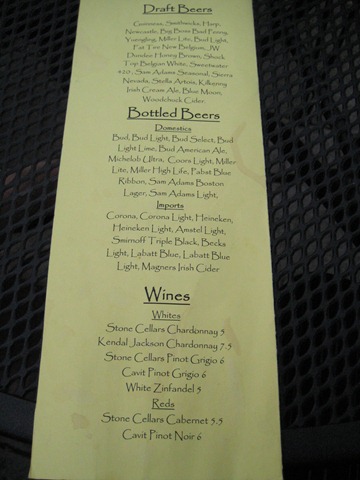 Draft Beers
Guinness, Smithwicks, Harp,
Newcastle, Big Boss Bad Penny,
Yuengling, Miller Lite, Bud Light,
Fat Tire New Belgium, JW
Dundee Honey Brown, Shock
Top Belgian White, Sweetwater
420, Sam Adams Seasonal, Sierra
Nevada, Stella Artois, Kilkenny
Irish Cream Ale, Blue Moon,
Woodchuck Cider.
Bottled Beers
Domestics
Bud, Bud Light, Bud Select, Bud
Light Lime, Bud American Ale,
Michelob Ultra, Coors Light, Miller
Lite, Miller High Life, Pabst Blue
Ribbon, Sam Adams Boston
Lager, Sam Adams Light,
Imports
Corona, Corona Light, Heineken,
Heineken Light, Amstel Light,
Smirnoff Triple Black, Becks
Light, Labatt Blue, Labatt Blue
Light, Magners Irish Cider
Wines
Whites
Stone Cellars Chardonnay 5
Kendal Jackson Chardonnay 7.5
Stone Cellars Pinot Grigio 6
Cavit Pinot Grigio 6
White Zinfandel 5
Reds
Stone Cellars Cabernet 5.5
Cavit Pinot Noir 6